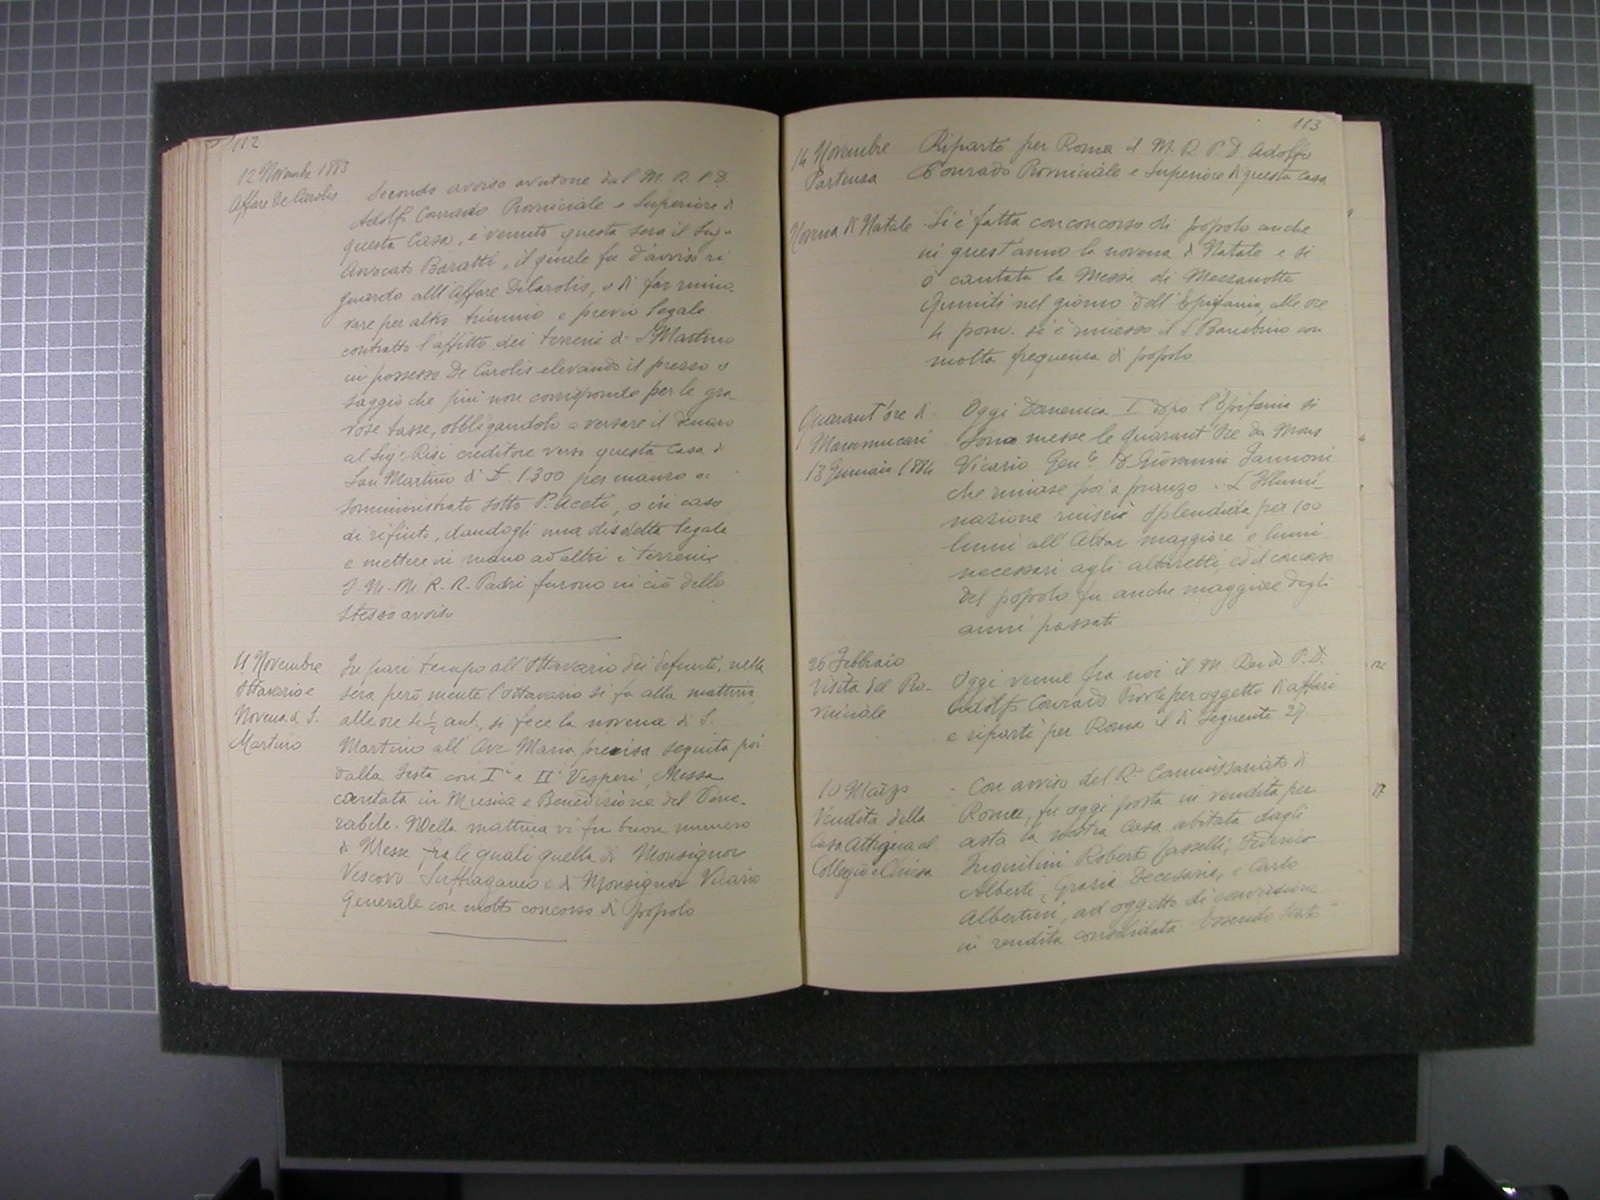 112
12 Novembre 1883
Affare De Carolis
Secondo avviso avutone dal M. R. P. D.
Adolfo Conrado Provinciale e Superiore di
questa Casa, è venuto questa sera il Sig.
Avvocato Baratti, il quale fu d'avviso ri
guardo all'Affare Decarolis, o di far rinno
vare per altro triennio e previo legale
contratto l'affitto dei terreni di S. Martino
in possesso De Carolis elevando il prezzo o
saggio che più non corrisponde per le gra
vose tasse, obbligandolo a versare il denaro
al Sig. Risi creditore verso questa Casa di
San Martino di £. 1300 per
somministrato sotto P. Aceti, o in caso
di rifiuto, dandogli una disdetta legale
e mettere in mano ad altri i terreni
I M. M. R. R. Padri furono in ciò dello
stesso avviso
11 Novembre
Ottavario e
Novena di S.
Martino
In pari tempo all'Ottavario dei defunti, nella
sera però, mentre l'ottavario si fa alla mattina
alle ore 4½ ant., si fece la novena di S.
Martino all'Ave Maria precisa seguita poi
dalla festa con I e II Vesperi, Messa
cantata in Musica e Benedizione del Vene-
rabile. Nella mattina vi fu buon numero
di Messe fra le quali quella di Monsignor
Vescovo Suffraganeo e di Monsignor Vicario
Generale con molto concorso di popolo
113
14 Novembre
Partenza
Riparte per Roma il M. R. P. D. Adolfo
Conrado Provinciale e Superiore di questa casa
Novena di Natale
Si è fatta con concorso di popolo anche
in quest'anno la novena di Natale e si
è cantata la Messa di Mezzanotte
Quindi nel giorno dell'Epifania, alle ore
4 pom. si è rimesso il S. Bambino con
molta frequenza di popolo
Quarant'ore di
Mommucari
13 Gennaio 1884
Oggi Domenica I dopo l'Epifania si
sono messe le Quarant'Ore da Mons
Vicario Gen.le D. Giovanni Jannoni
che rimase poi a pranzo. L'Illumi
nazione riuscì splendida per 100
lumi all'Altar maggiore e lumi
necessari agli altaretti ed il concorso
del popolo fu anche maggiore degli
anni passati
26 Febbraio
Visita del Pro-
vinciale
Oggi venne fra noi il M. Rev.do P. D.
Adolfo Conrado Prov.le per oggetto di affari
e ripartì per Roma il dì seguente 27.
10 Marzo
Vendita della
Casa Attigua al
Collegio e Chiesa
Con avviso del R. Commissariato di
Roma, fu oggi posta in vendita per
asta la nostra casa abitata dagli
Inquilini Roberto Casselli, Federico
Alberti, Grazia Decesaris, e Carlo
Albertini, ad oggetto di conversione
in rendita consolidata. Essendo stato